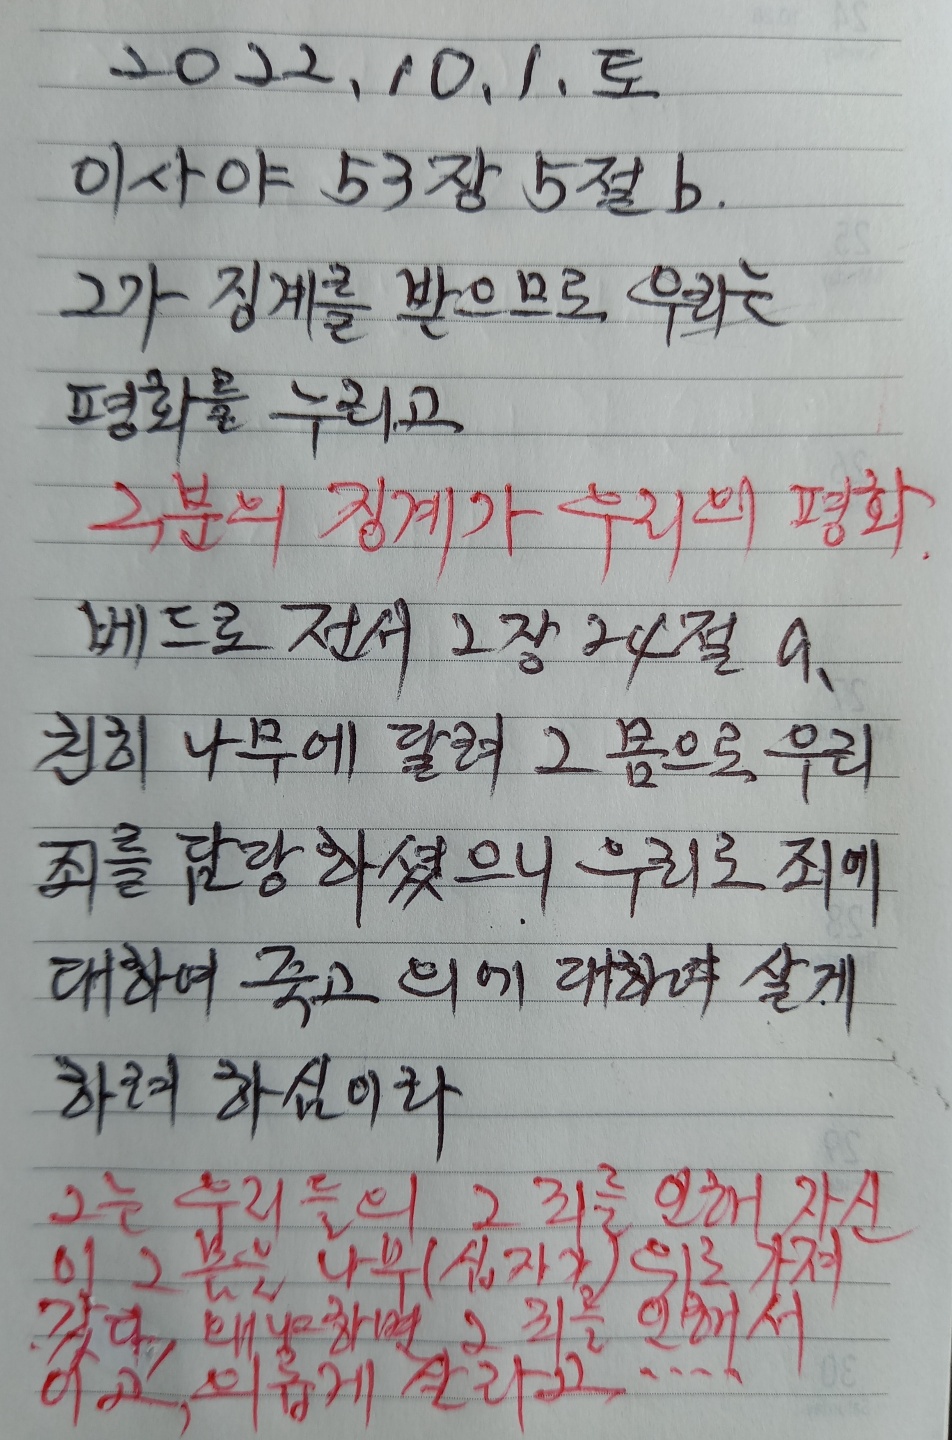 2022.10.1.토
이사야 53장 5절 b.
그가 징계를 받으므로 우리는
평화를 누리고
그분의 징계가 우리의 평화.
베드로 전서 2장 24절 a.
친히 나무에 달려 그 몸으로 우리
죄를 담당하셨으니 우리로 죄에
대하여 죽고 의에 대하여 살게
하려 하심이라
그는 우리들의 그 죄를 인해 자신
이 그 몸을 나무(십자가) 위로 가져
갔다, 왜냐하면 그 죄를 인해서
이고, 의롭게 살라고 .....